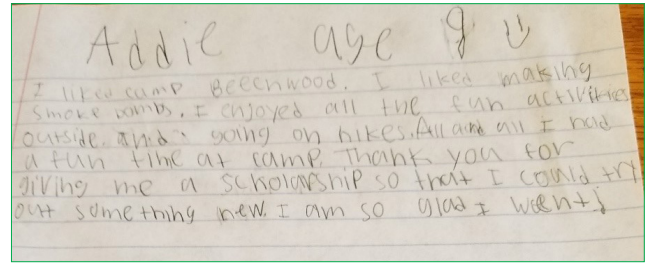 Addie age 9 :)
I liked camp Beechwood. I liked making
smoke bombs. I enjoyed all the fun activities
outside and going on hikes. All and all I had
a fun time at camp. Thank you for
giving me a scholarship so that I could try
out something new. I am so glad I weent :)